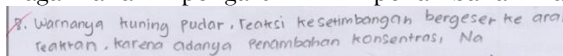 8. Warnanya kuning pudar, reaksi kesetimbangan bergeser ke ara
reaktan. Karena adanya Penambahan konsentrasi, Na